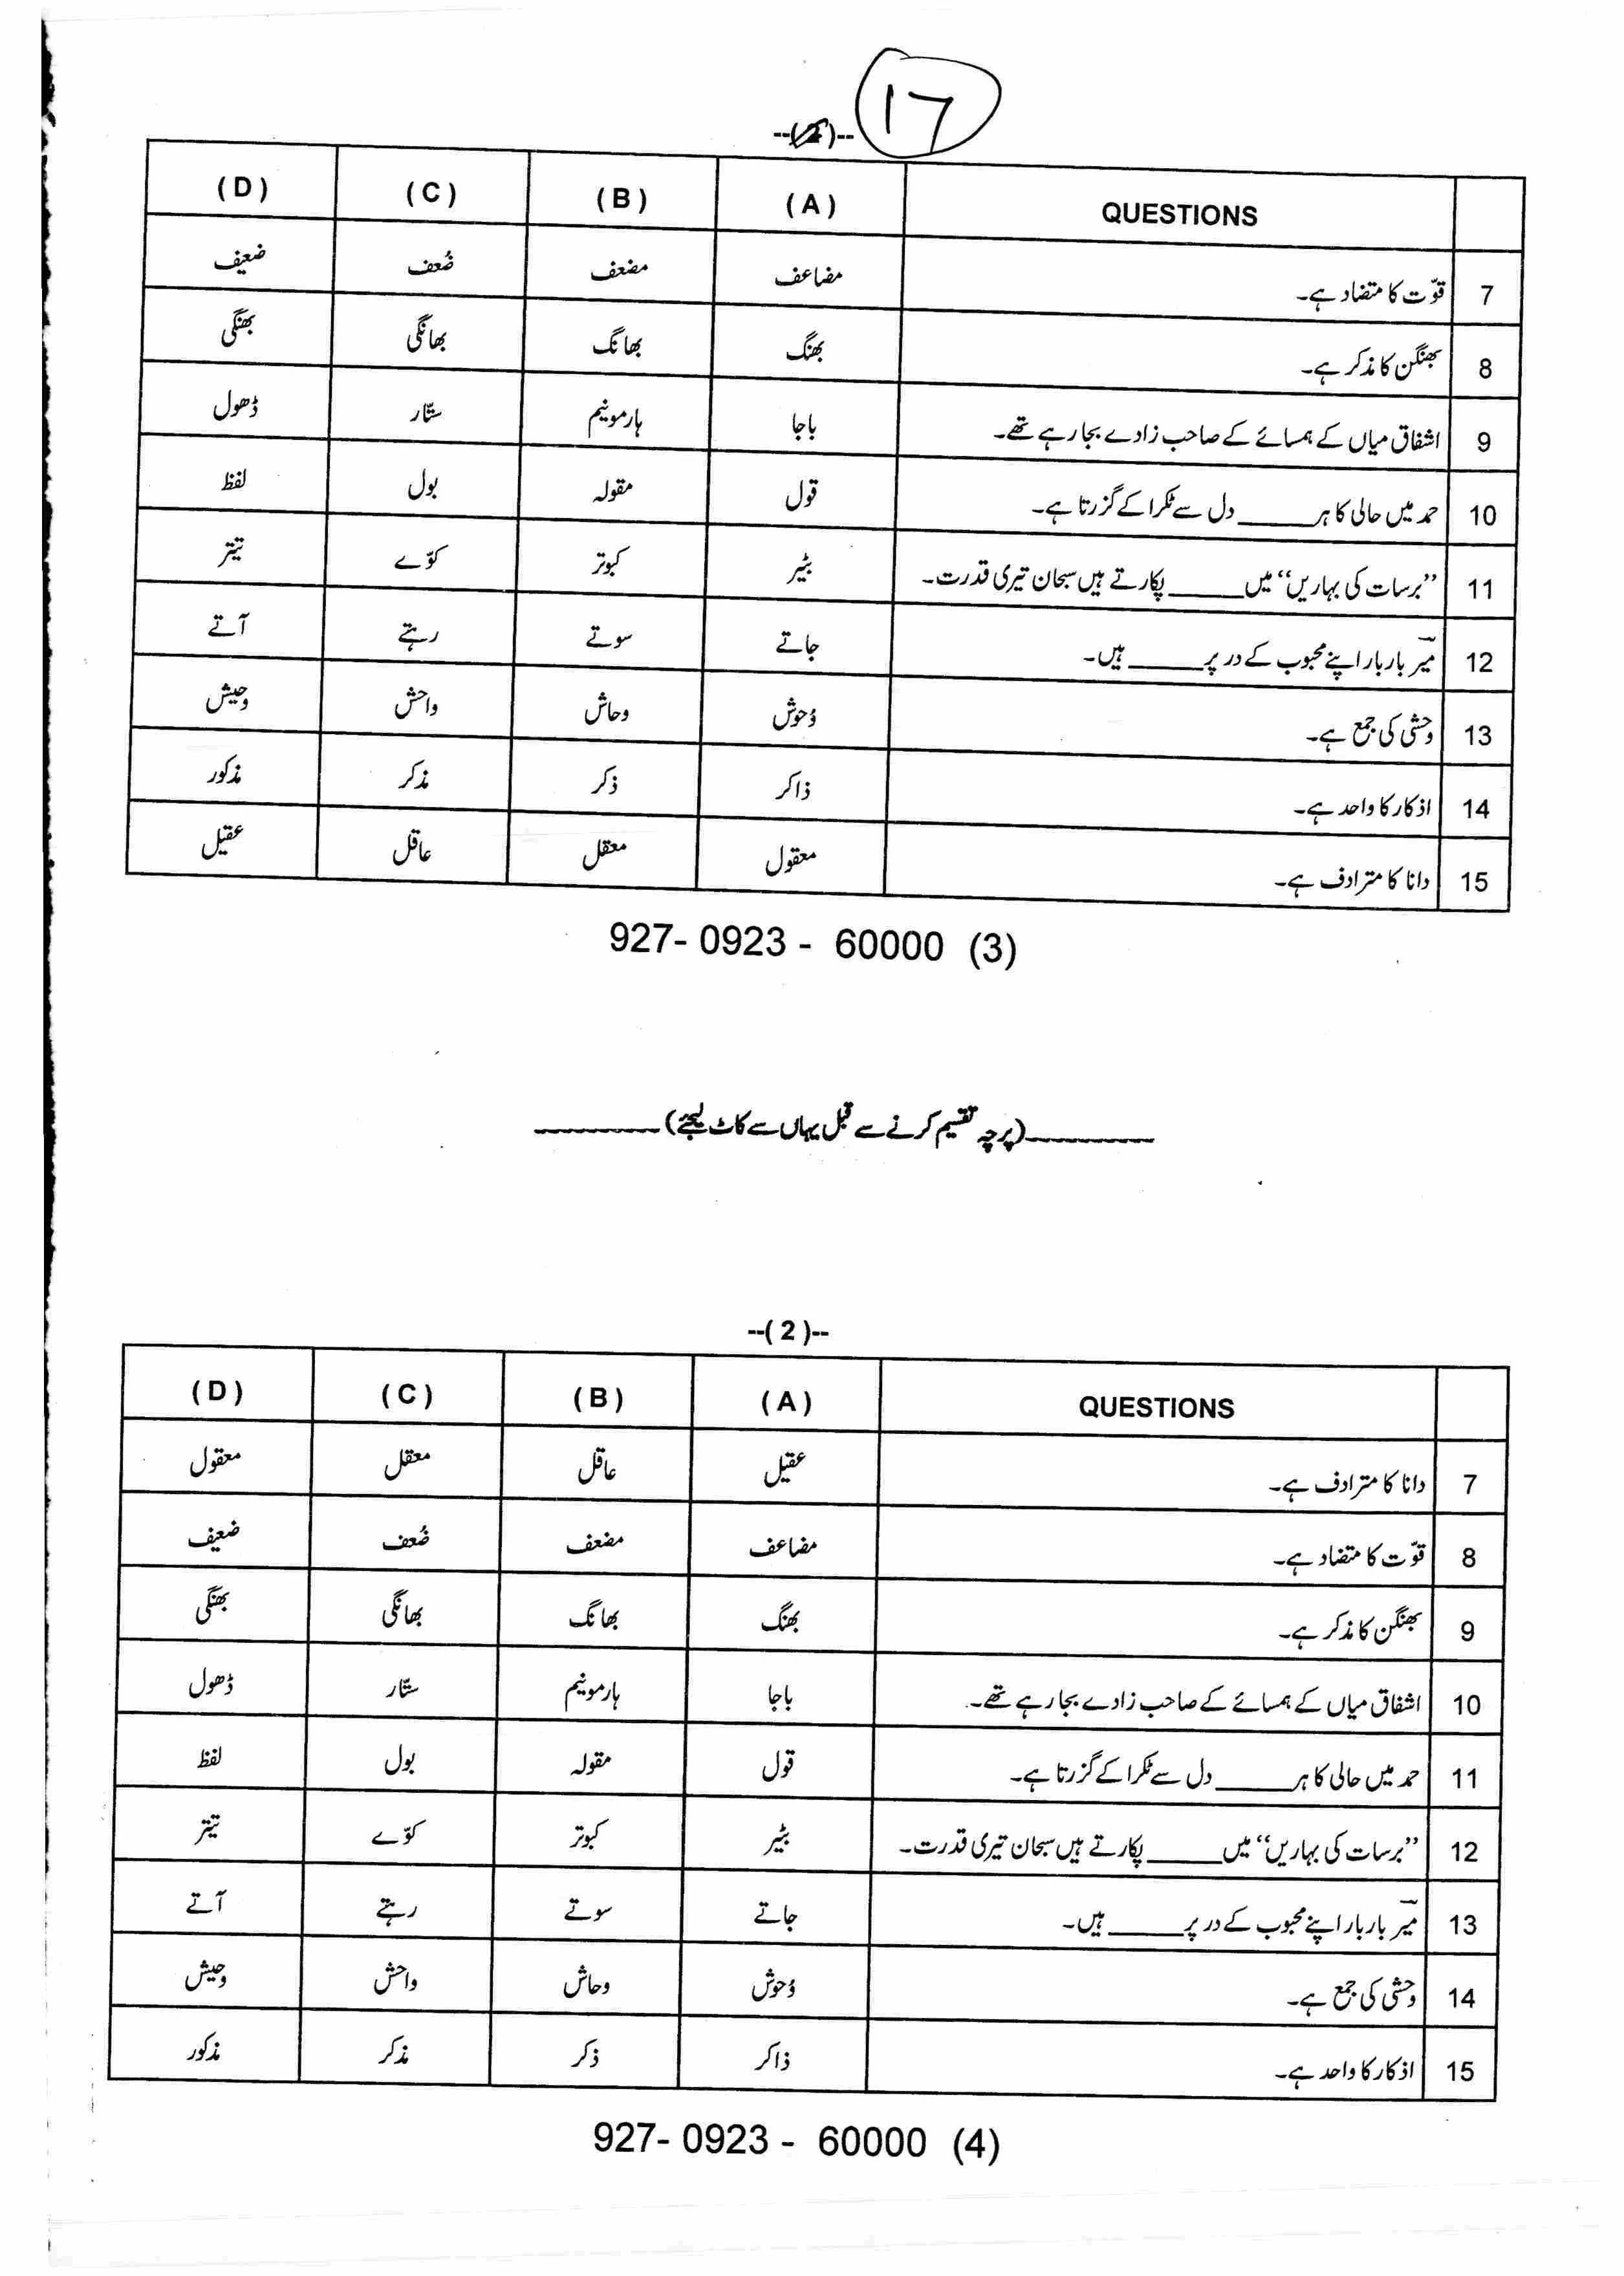 17
--(2)--
QUESTIONS (A) (B) (C) (D)
7 قوّت کا متضاد ہے۔ مضاعف مضعف ضُعف ضعیف
8 بھنگن کا مذکر ہے۔ بھنگ بھانگ بھانگی بھنگی
9 اشفاق میاں کے ہمسائے کے صاحب زادے بجا رہے تھے۔ باجا ہارمونیم ستّار ڈھول
10 حمد میں حالی کا ہر ______ دل سے ٹکرا کے گزرتا ہے۔ قول مقولہ بول لفظ
11 ’’برسات کی بہاریں‘‘ میں ______ پکارتے ہیں سبحان تیری قدرت۔ بٹیر کبوتر کوّے تیتر
12 میرؔ بار بار اپنے محبوب کے در پر ______ ہیں۔ جاتے سوتے رہتے آتے
13 وحشی کی جمع ہے۔ وُحوش وحاش واحش وحیش
14 اذکار کا واحد ہے۔ ذاکر ذکر مذکر مذکور
15 دانا کا مترادف ہے۔ معقول معقل عاقل عقیل
927- 0923 - 60000 (3)
______(پرچہ تقسیم کرنے سے قبل یہاں سے کاٹ لیجئے)______
--( 2 )--
QUESTIONS (A) (B) (C) (D)
7 دانا کا مترادف ہے۔ عقیل عاقل معقل معقول
8 قوّت کا متضاد ہے۔ مضاعف مضعف ضُعف ضعیف
9 بھنگن کا مذکر ہے۔ بھنگ بھانگ بھانگی بھنگی
10 اشفاق میاں کے ہمسائے کے صاحب زادے بجا رہے تھے۔ باجا ہارمونیم ستّار ڈھول
11 حمد میں حالی کا ہر ______ دل سے ٹکرا کے گزرتا ہے۔ قول مقولہ بول لفظ
12 ’’برسات کی بہاریں‘‘ میں ______ پکارتے ہیں سبحان تیری قدرت۔ بٹیر کبوتر کوّے تیتر
13 میرؔ بار بار اپنے محبوب کے در پر ______ ہیں۔ جاتے سوتے رہتے آتے
14 وحشی کی جمع ہے۔ وُحوش وحاش واحش وحیش
15 اذکار کا واحد ہے۔ ذاکر ذکر مذکر مذکور
927- 0923 - 60000 (4)